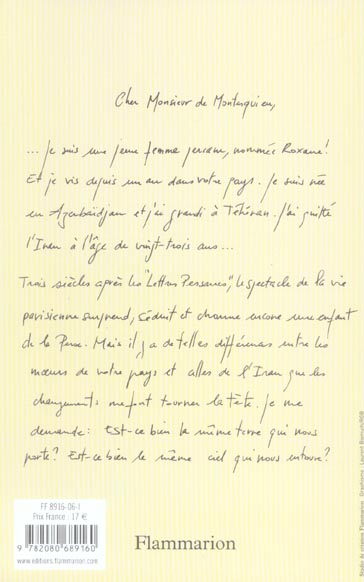 Cher Monsieur de Montesquieu,
... Je suis une jeune femme persane, nommée Roxane!
Et je vis depuis un an dans votre pays. Je suis née
en Azerbaïdjan et j'ai grandi à Téhéran. J'ai quitté
l'Iran à l'âge de vingt-trois ans...
Trois siècles après les "Lettres Persanes", le spectacle de la vie
parisienne surprend, séduit et charme encore une enfant
de la Perse. Mais il y a de telles différences entre les
mœurs de votre pays et celles de l'Iran que les
changements me font tourner la tête. Je me
demande: Est-ce bien la même terre qui nous
porte? Est-ce bien le même ciel qui nous entoure?
FF 8916-06-I
Prix France : 17 €
9 782080 689160
www.editions.flammarion.com
Flammarion
Studio de création Flammarion Graphisme : Laurent